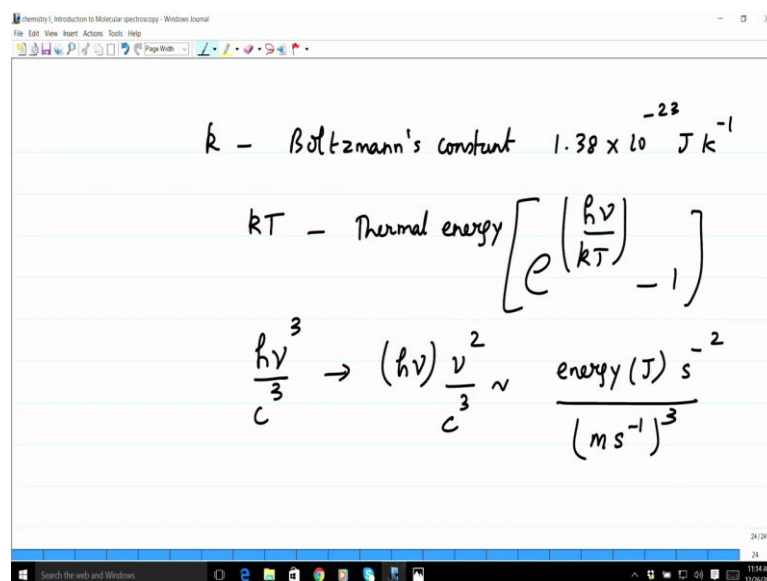 chemistry I_Introduction to Molecular spectroscopy - Windows Journal
File Edit View Insert Actions Tools Help
Page Width
k - Boltzmann's constant 1.38 x 10^-23 J k^-1
kT - Thermal energy [e^(hν/kT) - 1]
hν^3/c^3 → (hν) ν^2/c^3 ~ energy (J) s^-2/(m s^-1)^3
24/24
24
Search the web and Windows
11:14 A